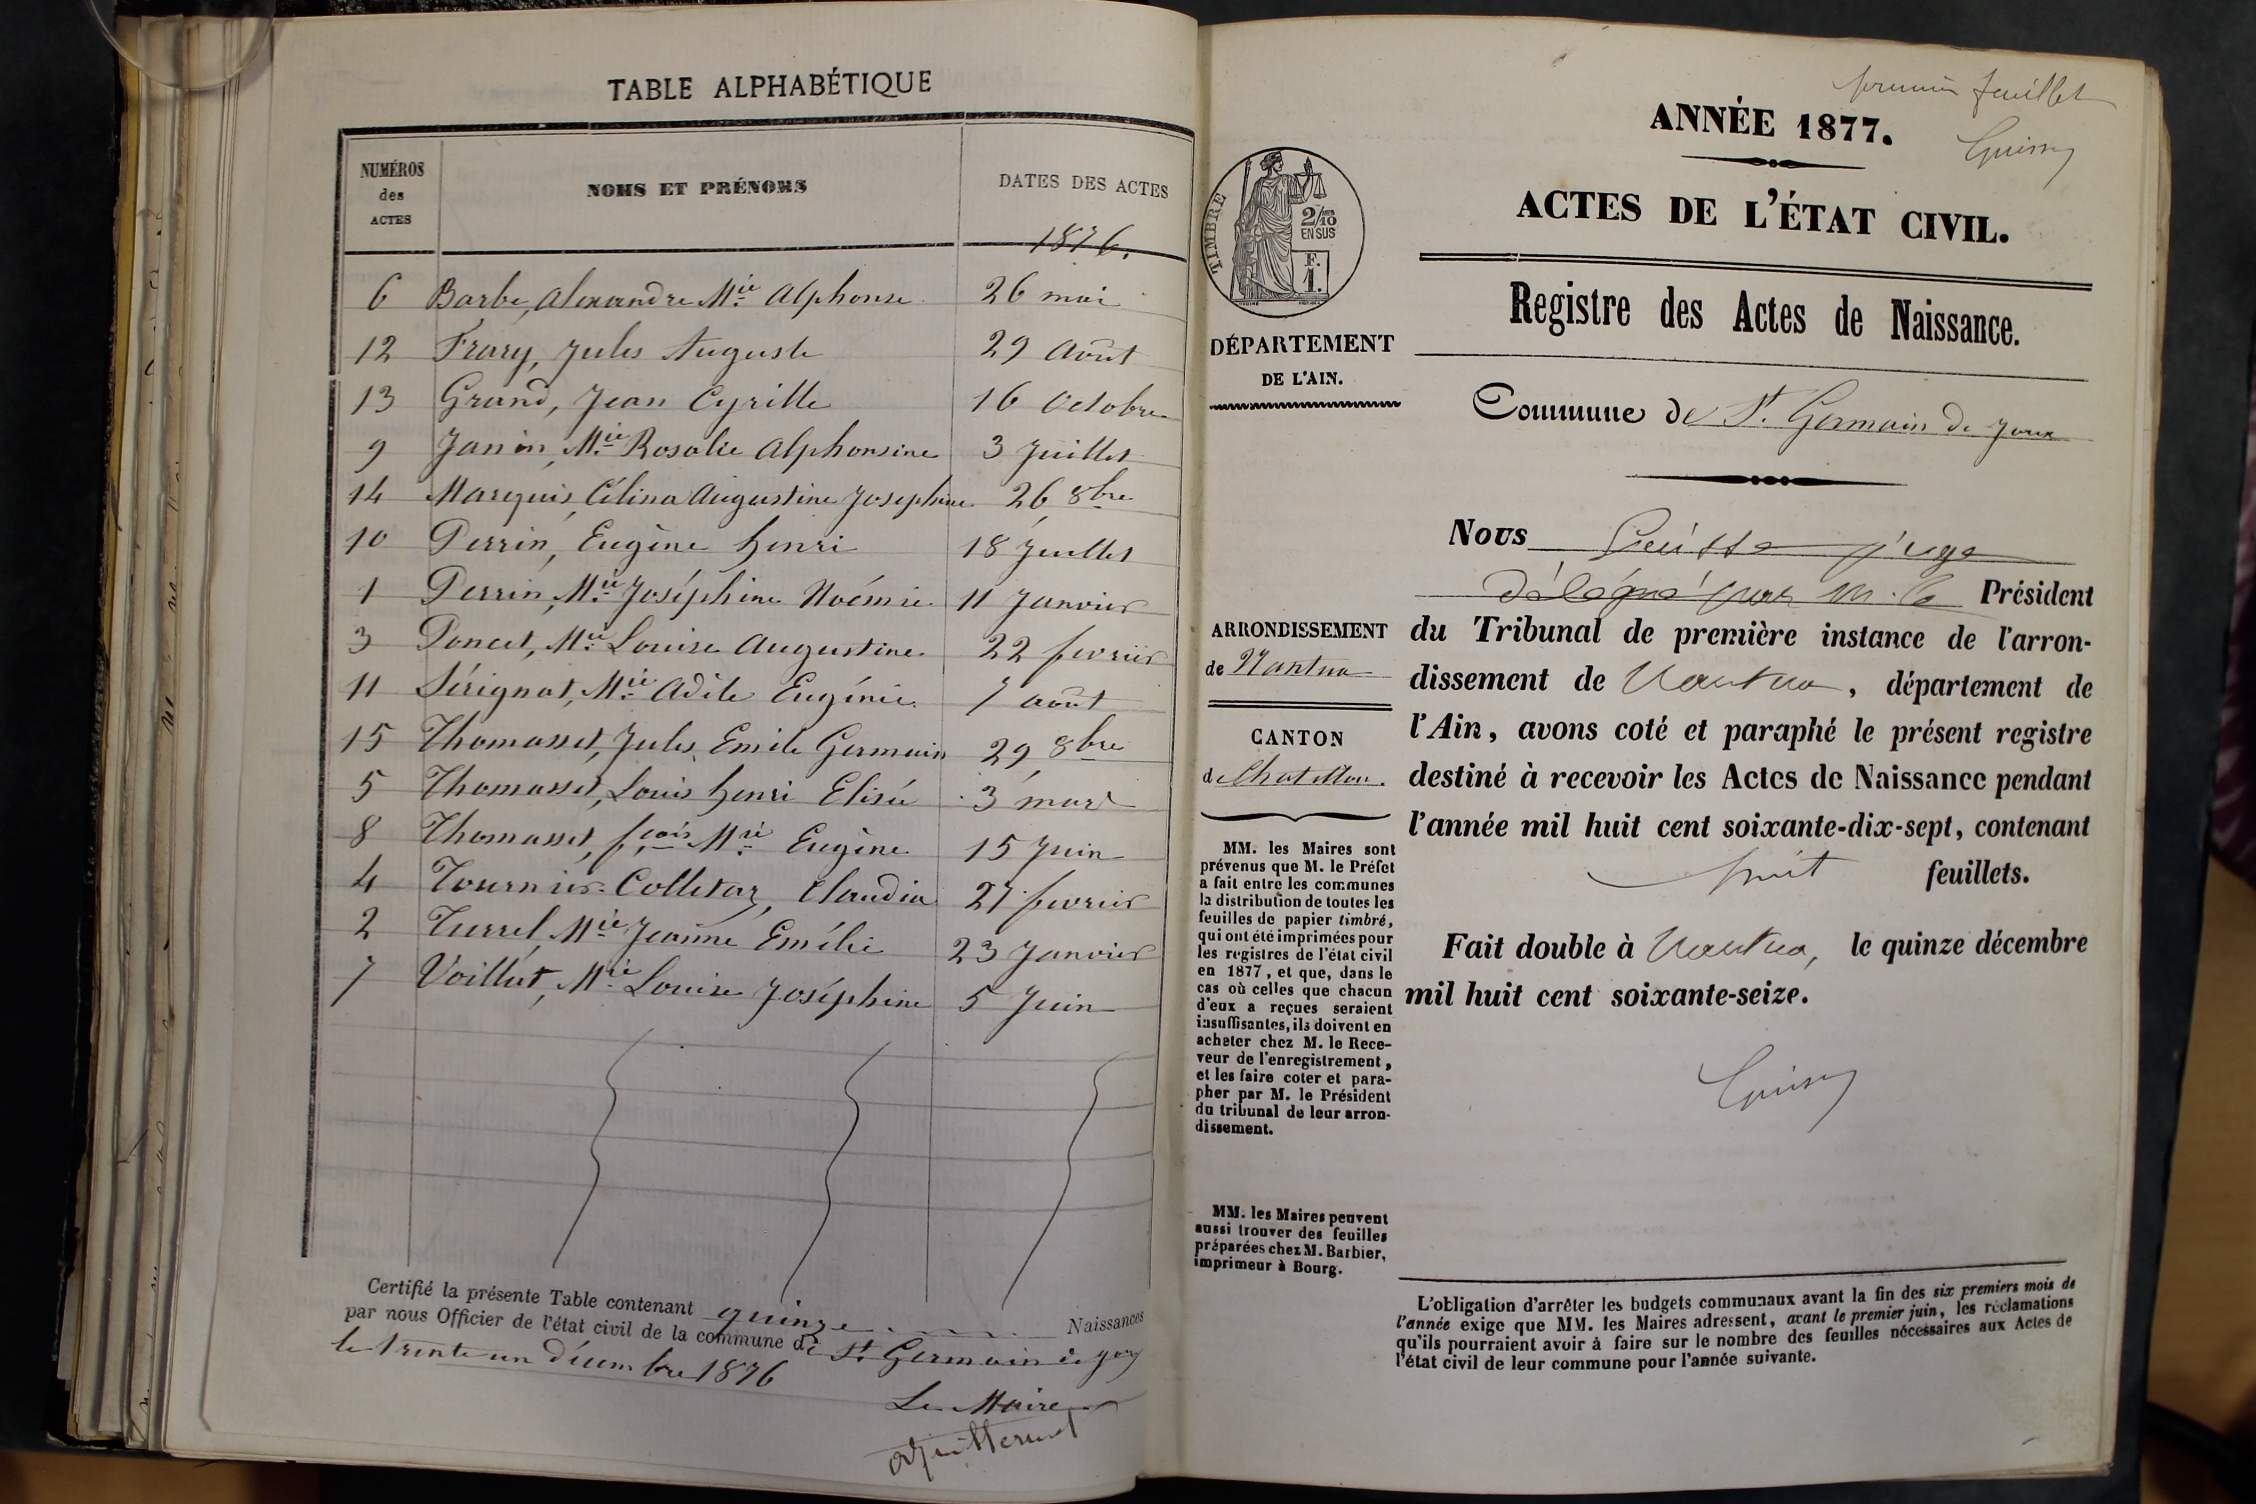 TABLE ALPHABÉTIQUE
NUMÉROS des ACTES
NOMS ET PRÉNOMS
DATES DES ACTES
1876.
6 Barbe, Alexandre Mie Alphonse 26 mai
12 Frary, Jules Auguste 29 Août
13 Grand, Jean Cyrille 16 Octobre
9 Janin, Mie Rosalie Alphonsine 3 Juillet
14 Marquis, Célina Augustine Josephine 26 8bre
10 Perrin, Eugène henri 18 Juillet
1 Perrin, Mie Joséphine Noémie 11 Janvier
3 Poncet, Mie Louise Augustine 22 fevrier
11 Sérignat, Mie Adèle Eugénie 7 août
15 Thomasset, Jules Emile Germain 29 8bre
5 Thomasset, Louis henri Elisée 3 mars
8 Thomasset, fçois Mie Eugène 15 Juin
4 Tournier-Colletaz, Claudia 27 fevrier
2 Turrel, Mie Jeanne Emélie 23 Janvier
7 Voillat, Mie Louise Joséphine 5 Juin
Certifié la présente Table contenant quinze Naissances
par nous Officier de l'état civil de la commune de St. Germain de Joux
le trente un décembre 1876
Le Maire
premier feuillet
ANNÉE 1877.
ACTES DE L'ÉTAT CIVIL.
Registre des Actes de Naissance.
TIMBRE
2/10
EN SUS
F.
1.
DÉPARTEMENT
DE L'AIN.
Commune de St. Germain de Joux
ARRONDISSEMENT
de Nantua
CANTON
de Chatillon.
MM. les Maires sont
prévenus que M. le Préfet
a fait entre les communes
la distribution de toutes les
feuilles de papier timbré,
qui ont été imprimées pour
les registres de l'état civil
en 1877, et que, dans le
cas où celles que chacun
d'eux a reçues seraient
insuffisantes, ils doivent en
acheter chez M. le Rece-
veur de l'enregistrement,
et les faire coter et para-
pher par M. le Président
du tribunal de leur arron-
dissement.
MM. les Maires peuvent
aussi trouver des feuilles
préparées chez M. Barbier,
imprimeur à Bourg.
Nous juge
délégué par M. le Président
du Tribunal de première instance de l'arron-
dissement de Nantua, département de
l'Ain, avons coté et paraphé le présent registre
destiné à recevoir les Actes de Naissance pendant
l'année mil huit cent soixante-dix-sept, contenant
huit feuillets.
Fait double à Nantua, le quinze décembre
mil huit cent soixante-seize.
L'obligation d'arrêter les budgets communaux avant la fin des six premiers mois de
l'année exige que MM. les Maires adressent, avant le premier juin, les réclamations
qu'ils pourraient avoir à faire sur le nombre des feuilles nécessaires aux Actes de
l'état civil de leur commune pour l'année suivante.